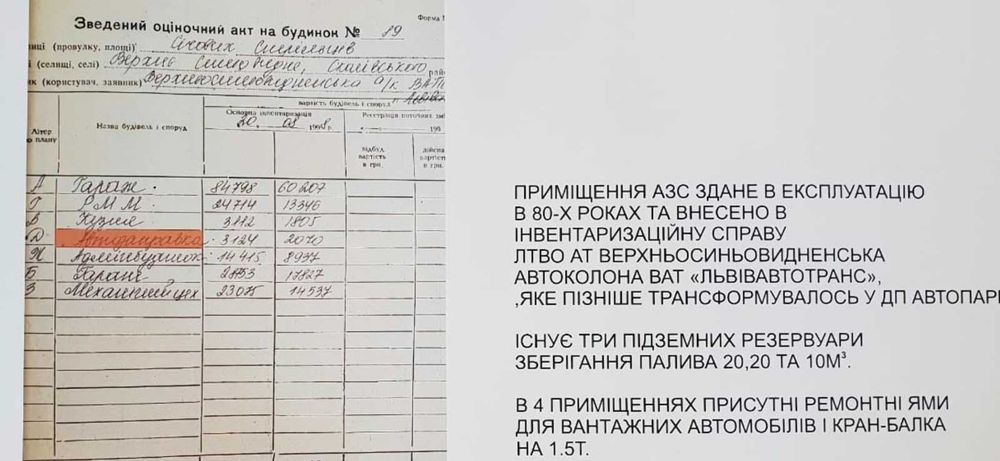 Форма
Зведений оціночний акт на будинок № 89
(провулку, площі) Січових Стрільців
(селищі, селі) Верхнє Синьовидне, Сколівського
(користувач, заявник) Верхньосиньовидненська а/к ВАТ
вартість будівель і споруд
Літер по плану
Назва будівель і споруд
Основна інвентаризація
20. 08 1998 р.
Реєстрація поточних змін
199
відбуд. вартість в грн.
дійсна вартість в грн.
А Гараж. 84798 60207
Г РММ 24714 13346
В Кузня 3112 1805
Д Автозаправка 3124 2010
Адмінбудинок 14415 8937
Б Гараж 17827
З Механічний цех 23075 14537
ПРИМІЩЕННЯ АЗС ЗДАНЕ В ЕКСПЛУАТАЦІЮ
В 80-Х РОКАХ ТА ВНЕСЕНО В
ІНВЕНТАРИЗАЦІЙНУ СПРАВУ
ЛТВО АТ ВЕРХНЬОСИНЬОВИДНЕНСЬКА
АВТОКОЛОНА ВАТ «ЛЬВІВАВТОТРАНС»,
,ЯКЕ ПІЗНІШЕ ТРАНСФОРМУВАЛОСЬ У ДП АВТОПАР
ІСНУЄ ТРИ ПІДЗЕМНИХ РЕЗЕРВУАРИ
ЗБЕРІГАННЯ ПАЛИВА 20,20 ТА 10М³.
В 4 ПРИМІЩЕННЯХ ПРИСУТНІ РЕМОНТНІ ЯМИ
ДЛЯ ВАНТАЖНИХ АВТОМОБІЛІВ І КРАН-БАЛКА
НА 1.5Т.